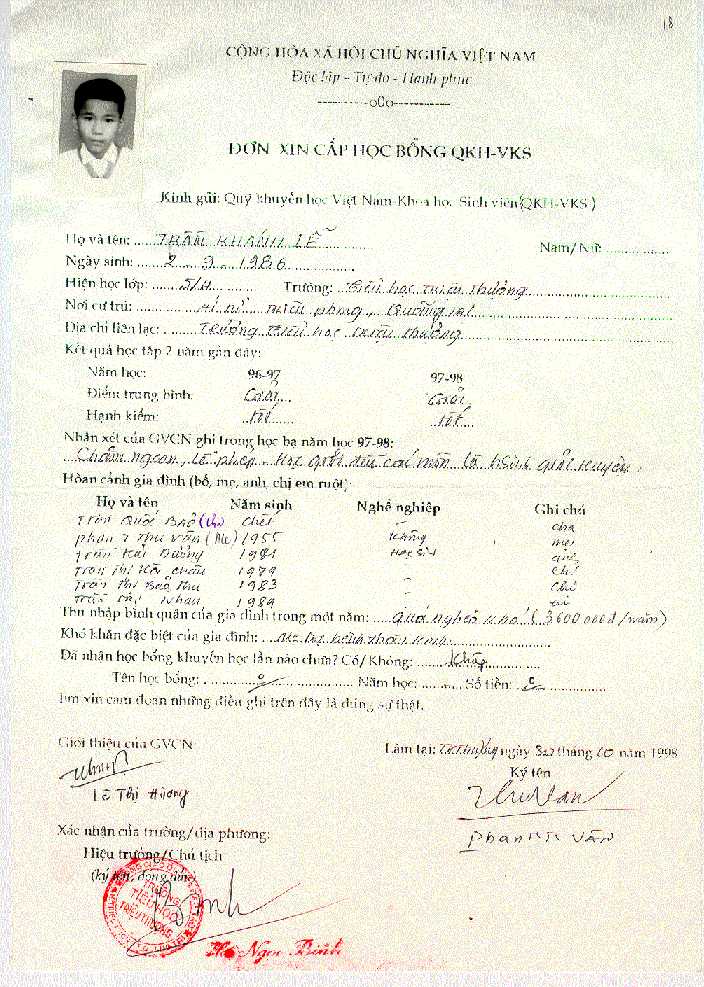 18
CỘNG HÒA XÃ HỘI CHỦ NGHĨA VIỆT NAM
Độc lập - Tự do - Hạnh phúc
----------oOo----------
ĐƠN XIN CẤP HỌC BỔNG QKH-VKS
Kính gửi: Quỹ khuyến học Việt Nam-Khoa học Sinh viên (QKH-VKS)
Họ và tên: TRẦN KHÁNH LỄ Nam/ Nữ:
Ngày sinh: 2 . 9 . 1986
Hiện học lớp: 5/ Trường: Tiểu học Triệu Thượng
Nơi cư trú: Triệu phong, Quảng trị
Địa chỉ liên lạc: Trường Tiểu học Triệu Thượng
Kết quả học tập 2 năm gần đây:
Năm học: 96-97 97-98
Điểm trung bình: Giỏi Giỏi
Hạnh kiểm: Tốt Tốt
Nhận xét của GVCN ghi trong học bạ năm học 97-98:
Chăm ngoan, Lễ phép. Học giỏi đều các môn là hsinh giỏi huyện.
Hoàn cảnh gia đình (bố, mẹ, anh, chị em ruột)
Họ và tên Năm sinh Nghề nghiệp Ghi chú
Trần Quốc Bảo chết cha
Phan T Thu Vân 1955 mẹ
Trần Hải Dương 1981 Học sinh
Trần Thị Hải Châu 1979 Chị
Trần Thị Bảo Thu 1983 Chị
Trần 1989
Thu nhập bình quân của gia đình trong một năm: quá nghèo khó (3600 000đ/năm)
Khó khăn đặc biệt của gia đình: Mẹ bị bệnh thần kinh
Đã nhận học bổng khuyến học lần nào chưa? Có/ Không:
Tên học bổng: 0 Năm học: Số tiền: 0
Em xin cam đoan những điều ghi trên đây là đúng sự thật.
Giới thiệu của GVCN Làm tại: ngày tháng 10 năm 1998
Ký tên
Lê Thị Hương
Thu Van
Phan VÂN
Xác nhận của trường/địa phương:
Hiệu trưởng/Chủ tịch
(ký tên, đóng dấu)
TRƯỜNG
TIỂU HỌC
TRIỆU THƯỢNG
Ngọc Bình